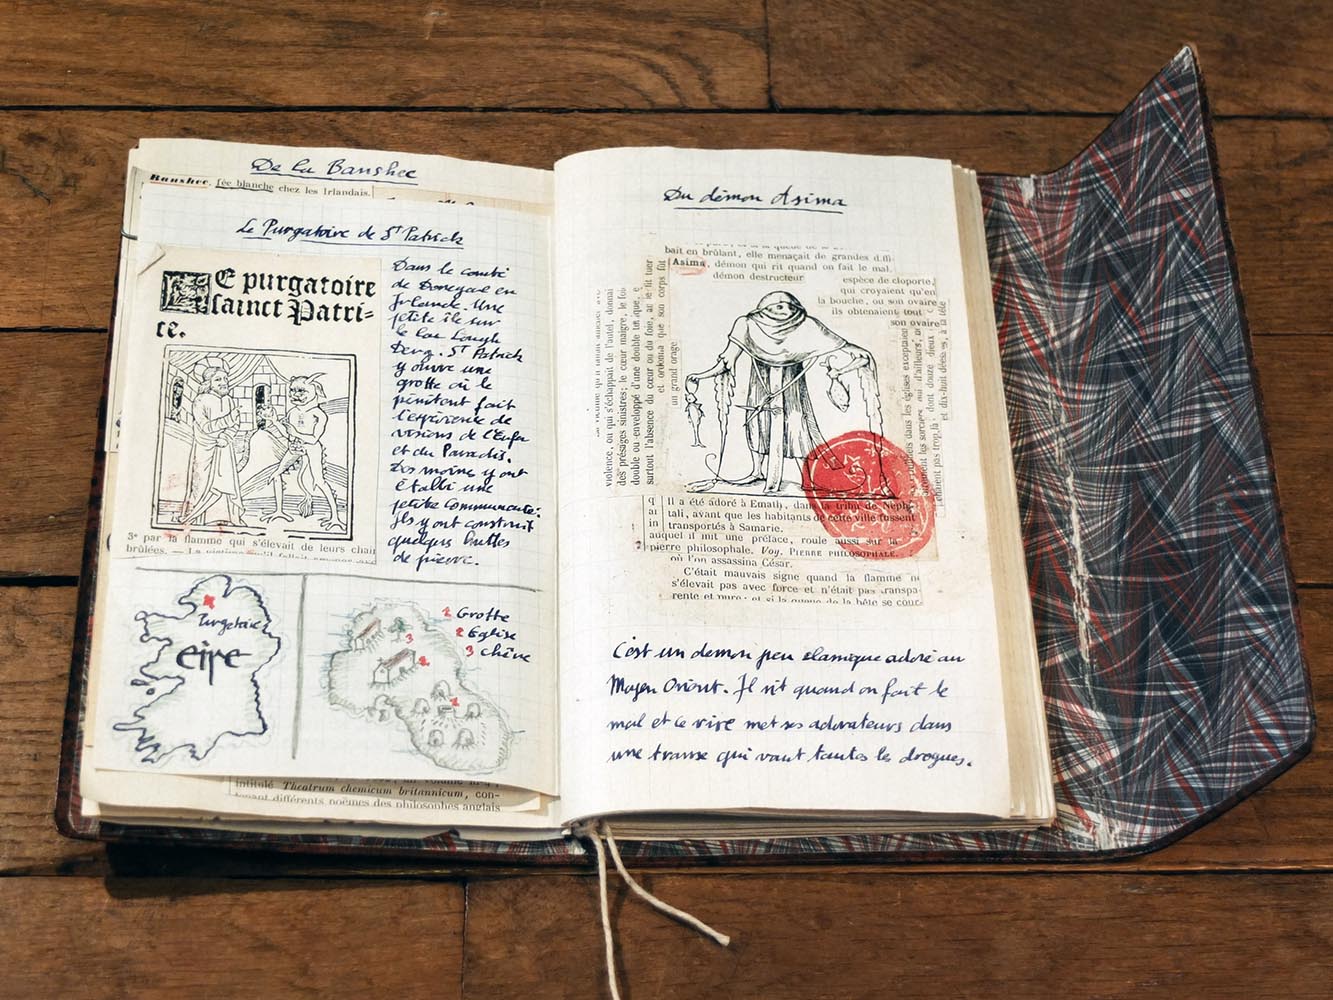 De la Banshee
Banshee, fée blanche chez les Irlandais.
Le Purgatoire de St Patrick
LE purgatoire
sainct Patri-
ce.
Dans le comté
de Donegal en
Irlande. Une
petite île sur
le lac Lough
Derg. St Patrick
y ouvre une
grotte où le
pénitent fait
l'expérience de
visions de l'Enfer
et du Paradis.
Des moine y ont
établi une
petite communauté.
Ils y ont construit
quelques huttes
de pierre.
3º par la flamme qui s'élevait de leurs chair
brûlées. — La
Purgatoire
eire
1 Grotte
2 Eglise
3 chêne
3
2
1
intitulé Theatrum chemicum britannicum, con-
tenant différents poèmes des philosophes anglais
Du démon Asima
bait en brûlant, elle menaçait de grandes diffi-
Asima, démon qui rit quand on fait le mal.
démon destructeur
espèce de cloporte,
qui croyaient qu'en
la bouche, ou son ovaire
ils obtenaient tout
son ovaire
violence, ou qui s'échappait de l'autel, donnai
des présages sinistres; le cœur maigre, le foi
double ou enveloppé d'une double tunique, e
surtout l'absence du cœur ou du foie, au
et ordonna que son corps fût
un grand orage
dans les églises exceptaien
dont douze dieux
et dix-huit déesses, à la tête
Il a été adoré à Emath, dans la tribu de Neph-
tali, avant que les habitants de cette ville fussent
transportés à Samarie.
auquel il mit une préface, roule aussi sur la
pierre philosophale. Voy. PIERRE PHILOSOPHALE.
où l'on assassina César.
C'était mauvais signe quand la flamme ne
s'élevait pas avec force et n'était pas transpa-
rente et pure; et si la queue de la bête se cour-
C'est un démon peu classique adoré au
Moyen Orient. Il rit quand on fait le
mal et ce rire met ses adorateurs dans
une transe qui vaut toutes les drogues.